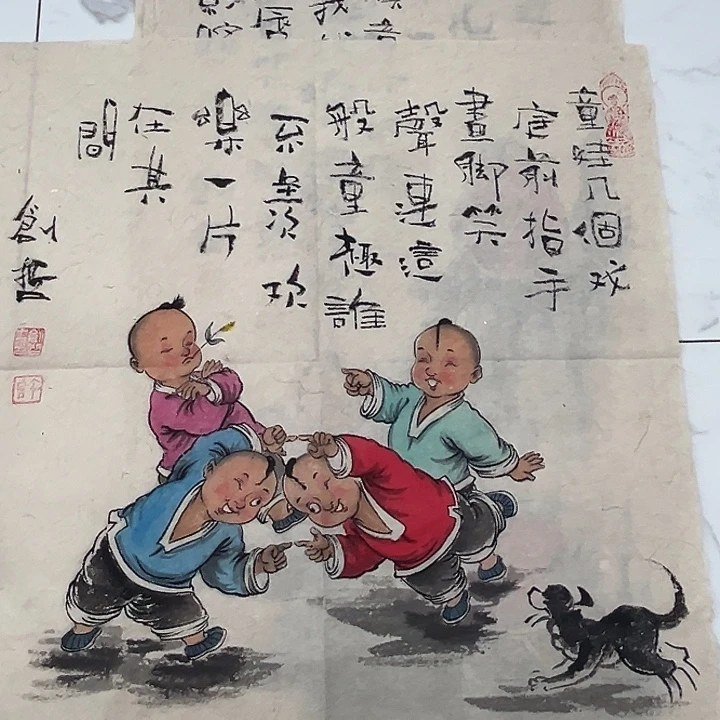 童娃几個戏
庭前指手
畫脚笑
聲連這
般童趣誰
不羡欢
樂一片
在其
間
創